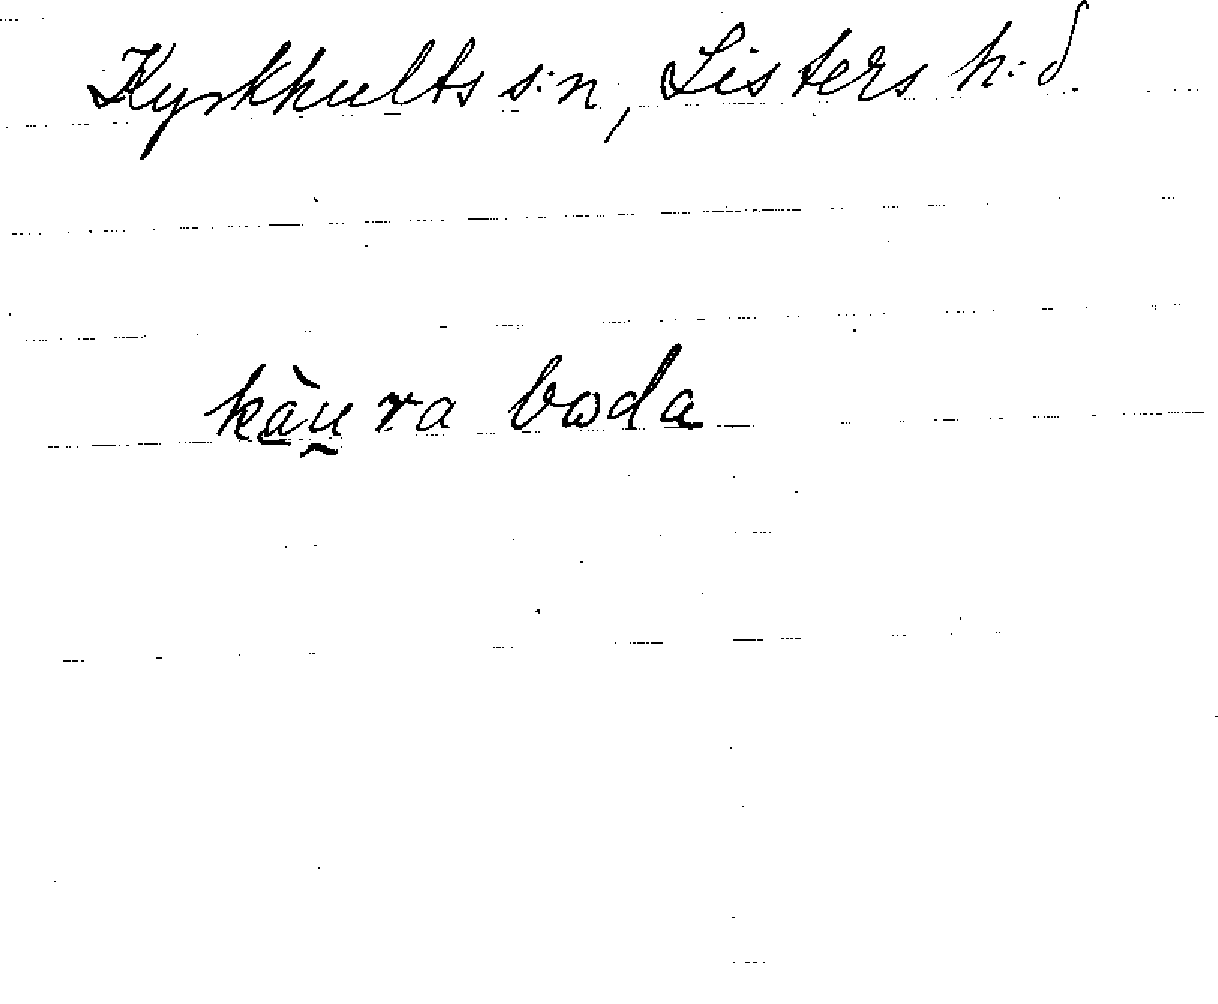 Kyrkhults s:n, Listers h:d.
kàu̯ra boda